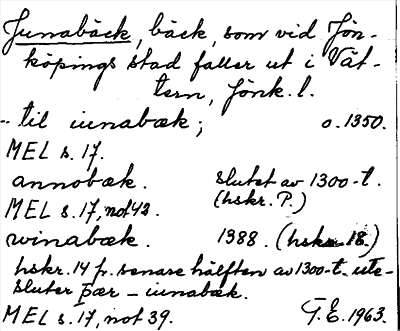 Junabäck, bäck, som vid Jön-
köpings stad faller ut i Vät-
tern, Jönk. l.
-- til iunabæk; o. 1350.
MEL s. 17.
annobæk. slutet av 1300-t.
MEL s. 17, not 42. (hskr. P.)
winabæk. 1388. (hskr. 18.)
hskr. 14 fr. senare hälften av 1300-t. ute-
sluter þær – iunabæk.
MEL s. 17, not 39. T.E. 1963.